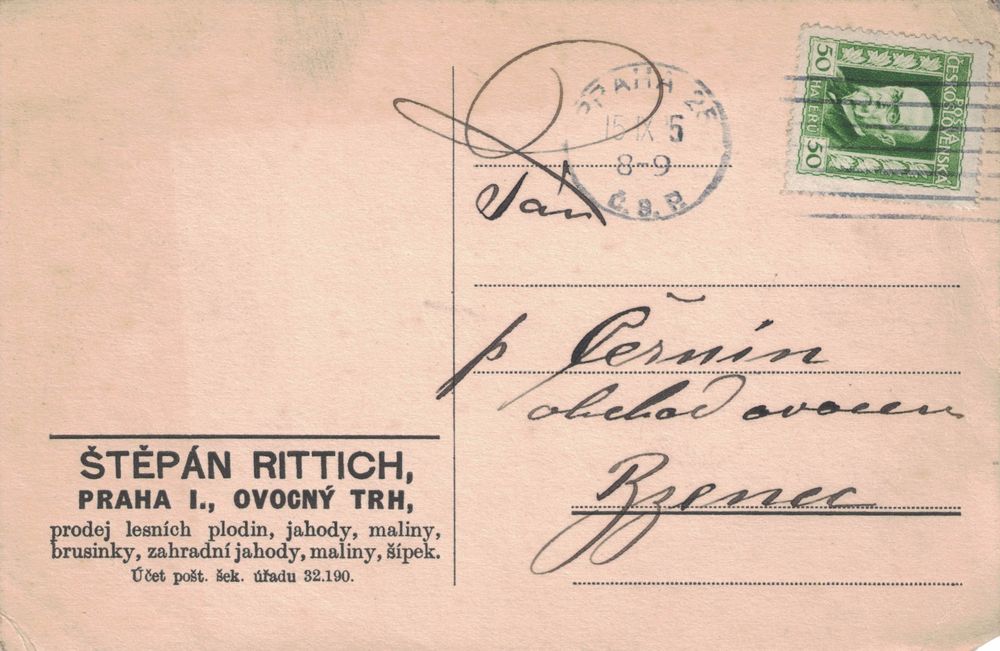 PRAHA 25
15 IX 5
8-9
Č. S. P.
POŠTA
ČESKOSLOVENSKÁ
50 HALÉŘŮ 50
Pán
p Černín
obchod ovocem
Bzenec
ŠTĚPÁN RITTICH,
PRAHA I., OVOCNÝ TRH,
prodej lesních plodin, jahody, maliny,
brusinky, zahradní jahody, maliny, šípek.
Účet pošt. šek. úřadu 32.190.